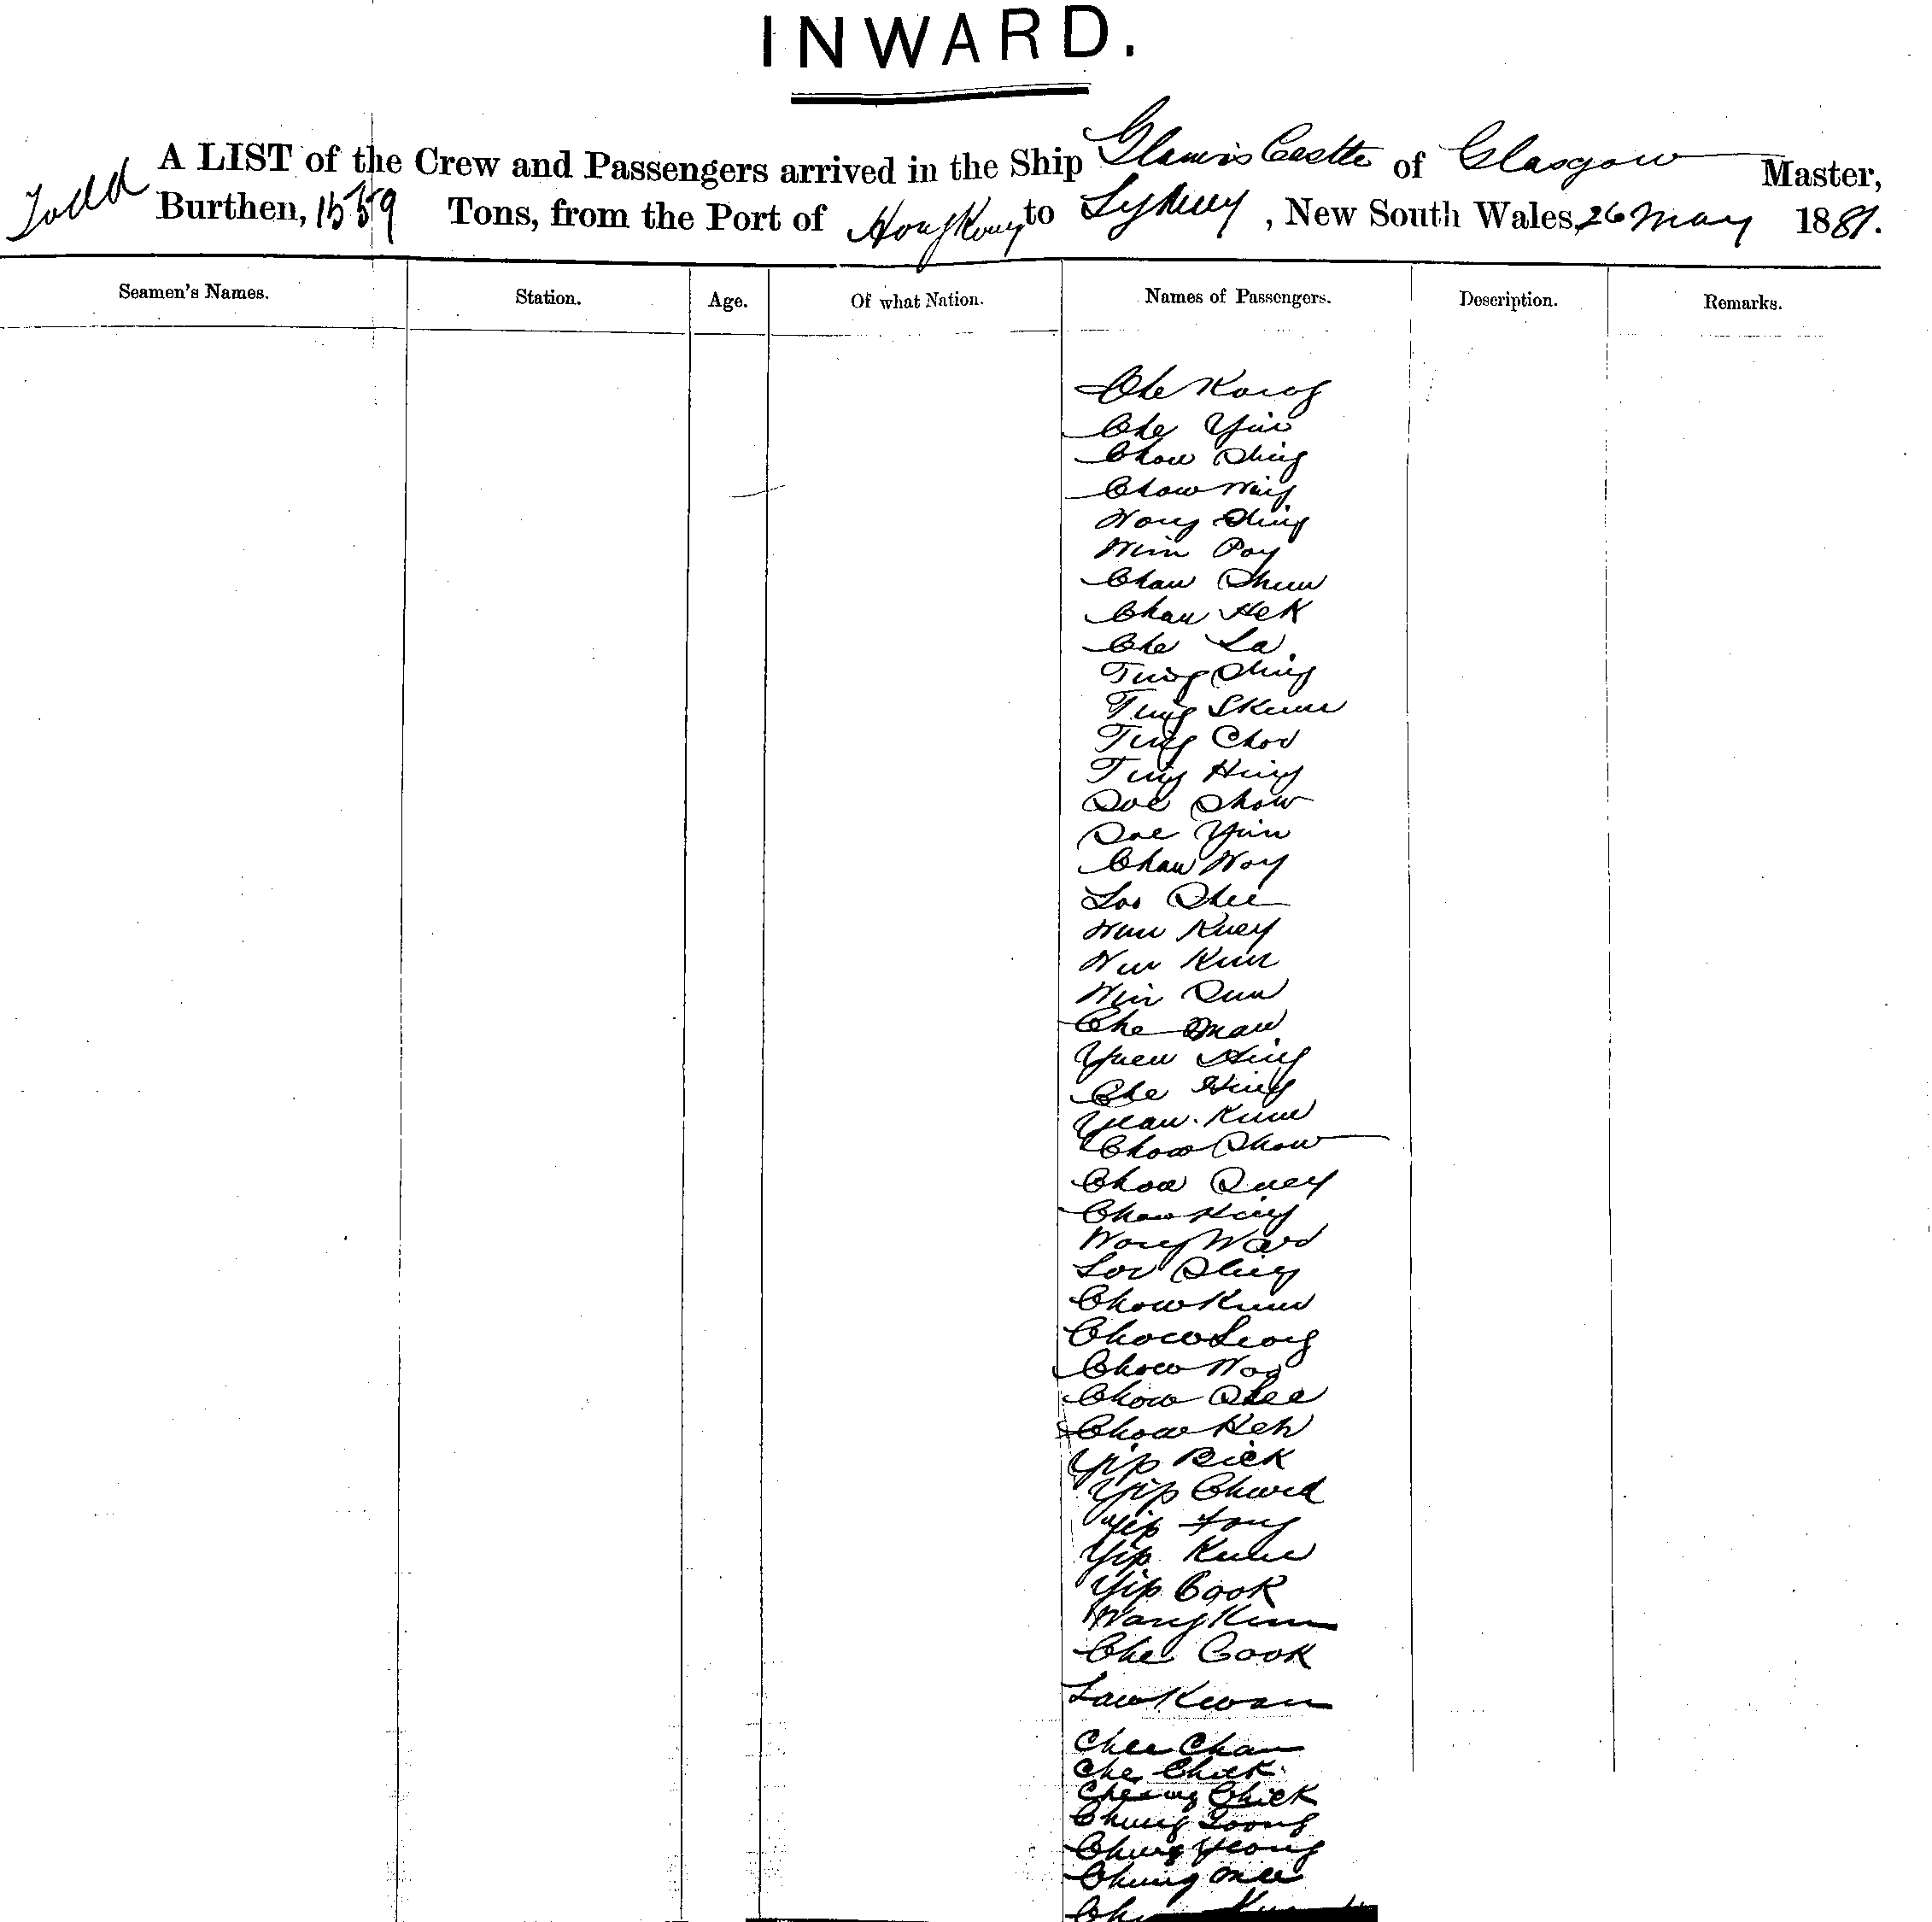 INWARD.
A LIST of the Crew and Passengers arrived in the Ship Glamis Castle of Glasgow Master,
Todd Burthen, 1559 Tons, from the Port of Hong Kong to Sydney, New South Wales, 26 May 1881.
Seamen's Names. Station. Age. Of what Nation. Names of Passengers. Description. Remarks.
Che Kong
Che Yin
Chow Shing
Chow Wing
Wong Shing
Win Poy
Chan Shun
Chan Hek
Che La
Ting Shing
Ting Skum
Ting Choo
Ting Hing
Soe Show
Soe Yin
Chan Woy
Loo Shee
Wun Kuey
Win Kim
Win Sun
Che Man
Yuen Hing
Che Hing
Yean Kum
Chow Show
Chow Quey
Chow King
Wong Wao
Loo Shing
Chow Kum
Chow Leong
Chow Woo
Chow Shee
Chow Heh
Yip Bick
Yip
Yip Fong
Yip Kum
Yip Cook
Wang Kum
Che Cook
Law Kwan
Chee Chan
Che Chick
Cheong Chick
Chung Loong
Chung Yeong
Chung Mee